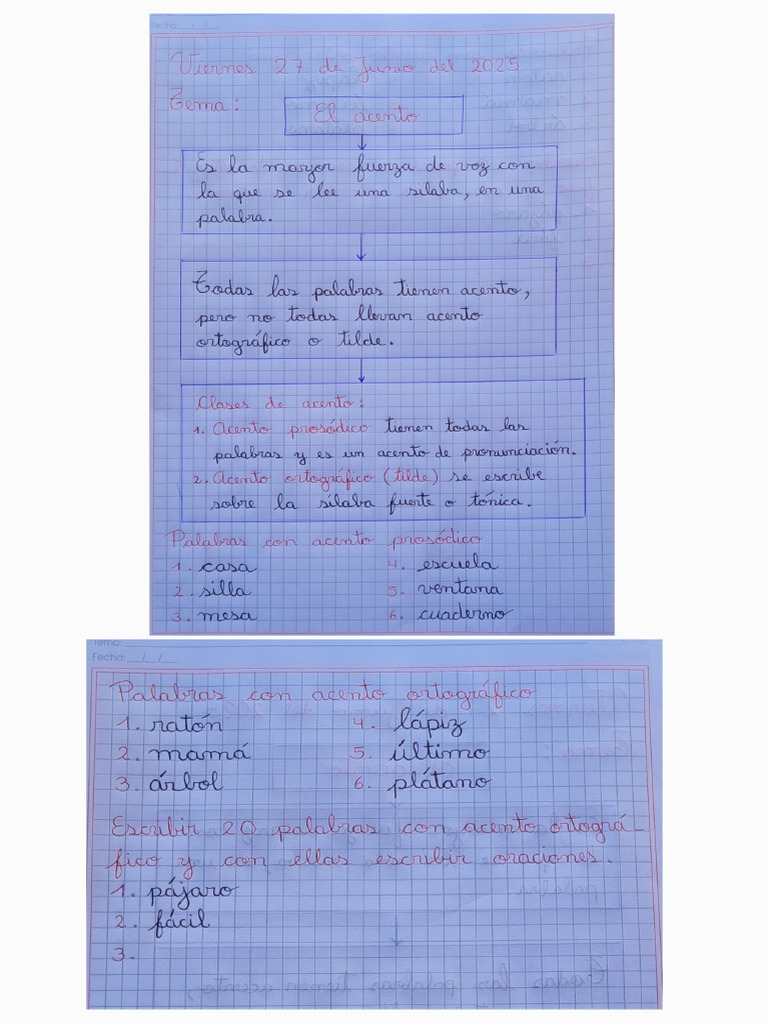 Fecha: / /
Viernes 27 de Junio del 2025
Tema:
El acento
Es la mayor fuerza de voz con
la que se lee una silaba, en una
palabra.
Todas las palabras tienen acento,
pero no todas llevan acento
ortográfico o tilde.
Clases de acento:
1. Acento prosódico tienen todas las
palabras y es un acento de pronunciación.
2. Acento ortográfico (tilde) se escribe
sobre la sílaba fuerte o tónica.
Palabras con acento prosódico
1. casa
2. silla
3. mesa
4. escuela
5. ventana
6. cuaderno
Tema:
Fecha: / /
Palabras con acento ortográfico
1. ratón
2. mamá
3. árbol
4. lápiz
5. último
6. plátano
Escribir 20 palabras con acento ortográ-
fico y con ellas escribir oraciones.
1. pájaro
2. fácil
3.